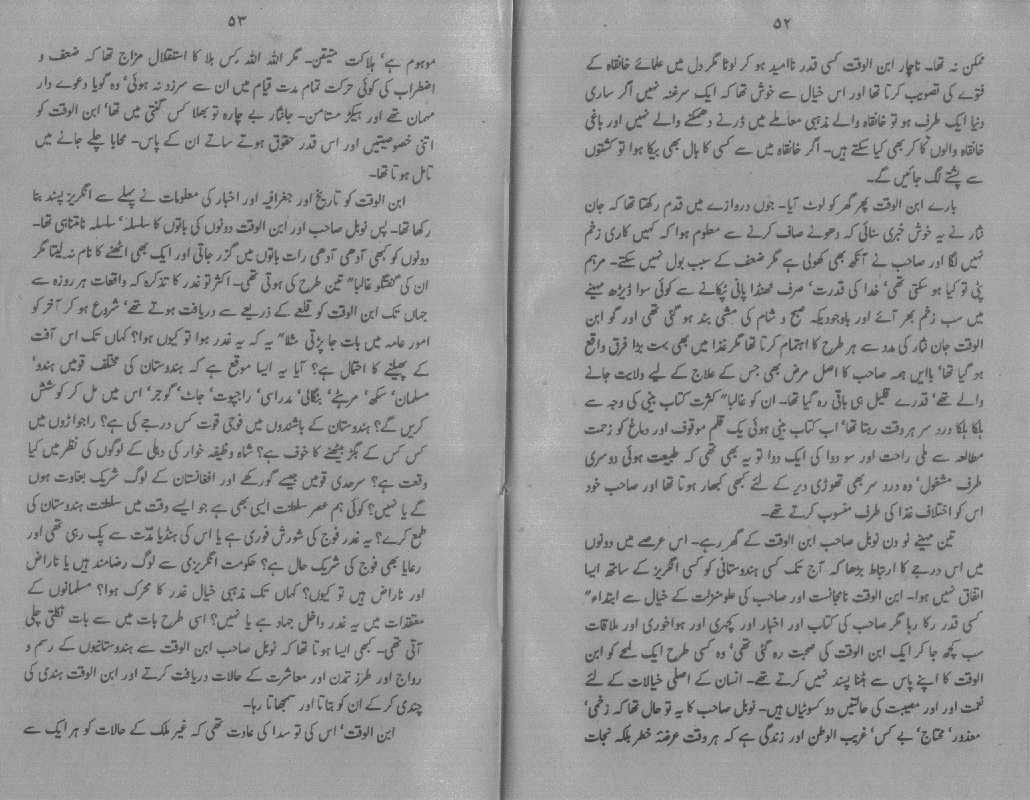 ۵۲
ممکن نہ تھا۔ ناچار ابن الوقت کسی قدر ناامید ہو کر لوٹا مگر دل میں علمائے خانقاہ کے
فتوے کی تصویب کرتا تھا اور اس خیال سے خوش تھا کہ ایک سرغنہ نہیں اگر ساری
دنیا ایک طرف ہو تو خانقاہ والے مذہبی معاملے میں ڈرنے دھمکنے والے نہیں اور باغی
خانقاہ والوں کا کر بھی کیا سکتے ہیں۔ اگر خانقاہ میں سے کسی کا بال بھی بیکا ہوا تو کشتوں
سے پشتے لگ جائیں گے۔
بارے ابن الوقت پھر گھر کو لوٹ آیا۔ جوں دروازے میں قدم رکھتا تھا کہ جان
نثار نے یہ خوش خبری سنائی کہ دھونے صاف کرنے سے معلوم ہوا کہ کہیں کاری زخم
نہیں لگا اور صاحب نے آنکھ بھی کھولی ہے مگر ضعف کے سبب بول نہیں سکتے۔ مرہم
پٹی تو کیا ہو سکتی تھی‘ خدا کی قدرت‘ صرف ٹھنڈا پانی ٹپکانے سے کوئی سوا ڈیڑھ مہینے
میں سب زخم بھر آئے اور باوجودیکہ صبح و شام کی مشی بند ہو گئی تھی اور گو ابن
الوقت جان نثار کی مدد سے ہر طرح کا اہتمام کرتا تھا مگر غذا میں بھی بہت بڑا فرق واقع
ہو گیا تھا‘ باایں ہمہ صاحب کا اصل مرض بھی جس کے علاج کے لیے ولایت جانے
والے تھے‘ قدرے قلیل ہی باقی رہ گیا تھا۔ ان کو غالبا" کثرت کتاب بینی کی وجہ سے
ہلکا ہلکا درد سر ہر وقت رہتا تھا‘ اب کتاب بینی ہوئی یک قلم موقوف اور دماغ کو زحمت
مطالعہ سے ملی راحت اور سو دوا کی ایک دوا تو یہ بھی تھی کہ طبیعت ہوئی دوسری
طرف مشغول‘ وہ درد سر بھی تھوڑی دیر کے لئے کبھی کبھار ہوتا تھا اور صاحب خود
اس کو اختلاف غذا کی طرف منسوب کرتے تھے۔
تین مہینے نو دن نوبل صاحب ابن الوقت کے گھر رہے۔ اس عرصے میں دونوں
میں اس درجے کا ارتباط بڑھا کہ آج تک کسی ہندوستانی کو کسی انگریز کے ساتھ ایسا
اتفاق نہیں ہوا۔ ابن الوقت نامجانست اور صاحب کی علومنزلت کے خیال سے ابتداء"
کسی قدر رکا رہا مگر صاحب کی کتاب اور اخبار اور کچہری اور ہواخوری اور ملاقات
سب کچھ جا کر ایک ابن الوقت کی صحبت رہ گئی تھی‘ وہ کسی طرح ایک لمحے کو ابن
الوقت کا اپنے پاس سے ہٹنا پسند نہیں کرتے تھے۔ انسان کے اصلی خیالات کے لئے
نعمت اور اور مصیبت کی حالتیں دو کسوٹیاں ہیں۔ نوبل صاحب کا یہ تو حال تھا کہ زخمی‘
معذور‘ محتاج‘ بے کس‘ غریب الوطن اور زندگی ہے کہ ہر وقت عرضۂ خطر بلکہ نجات
۵۳
موہوم ہے‘ ہلاکت متیقن۔ مگر اللہ اللہ کس بلا کا استقلال مزاج تھا کہ ضعف و
اضطراب کی کوئی حرکت تمام مدت قیام میں ان سے سرزد نہ ہوئی‘ وہ گویا دعوے دار
مہمان تھے اور ہیکڑ مستامن۔ جانثار بے چارہ تو بھلا کس گنتی میں تھا‘ ابن الوقت کو
اتنی خصوصیتیں اور اس قدر حقوق ہوتے ساتے ان کے پاس۔ محابا چلے جانے میں
تامل ہوتا تھا۔
ابن الوقت کو تاریخ اور جغرافیہ اور اخبار کی معلومات نے پہلے سے انگریز پسند بنا
رکھا تھا۔ پس نوبل صاحب اور ابن الوقت دونوں کی باتوں کا سلسلہ‘ سلسلہ نامتناہی تھا۔
دونوں کو کبھی آدھی آدھی رات باتوں میں گزر جاتی اور ایک بھی اٹھنے کا نام نہ لیتا مگر
ان کی گفتگو غالبا" تین طرح کی ہوتی تھی۔ اکثر تو غدر کا تذکرہ کہ واقعات ہر روزہ سے
جہاں تک ابن الوقت کو قلعے کے ذریعے سے دریافت ہوتے تھے‘ شروع ہو کر آخر کو
امور عامہ میں بات جا پڑتی مثلا" یہ کہ یہ غدر ہوا تو کیوں ہوا؟ کہاں تک اس آفت
کے پھیلنے کا احتمال ہے؟ آیا یہ ایسا موقع ہے کہ ہندوستان کی مختلف قومیں ہندو‘
مسلمان‘ سکھ‘ مرہٹے‘ بنگالی‘ مدراسی‘ راجپوت‘ جاٹ‘ گوجر‘ اس میں مل کر کوشش
کریں گے؟ ہندوستان کے باشندوں میں فوجی قوت کس درجے کی ہے؟ راجواڑوں میں
کس کس کے بگڑ بیٹھنے کا خوف ہے؟ شاہ وظیفہ خوار کی دہلی کے لوگوں کی نظر میں کیا
وقعت ہے؟ سرحدی قومیں جیسے گورکھے اور افغانستان کے لوگ شریک بغاوت ہوں
گے یا نہیں؟ کوئی ہم عصر سلطنت ایسی بھی ہے جو ایسے وقت میں سلطنت ہندوستان کی
طمع کرے؟ یہ غدر فوج کی شورش فوری ہے یا اس کی ہنڈیا مدّت سے پک رہی تھی اور
رعایا بھی فوج کی شریک حال ہے؟ حکومت انگریزی سے لوگ رضامند ہیں یا ناراض
اور ناراض ہیں تو کیوں؟ کہاں تک مذہبی خیال غدر کا محرک ہوا؟ مسلمانوں کے
معتقدات میں یہ غدر داخل جہاد ہے یا نہیں؟ اسی طرح بات میں سے بات نکلتی چلی
آتی تھی۔ کبھی ایسا ہوتا تھا کہ نوبل صاحب ابن الوقت سے ہندوستانیوں کے رسم و
رواج اور طرز تمدن اور معاشرت کے حالات دریافت کرتے اور ابن الوقت ہندی کی
چندی کر کے ان کو بتاتا اور سمجھاتا رہا۔
ابن الوقت‘ اس کی تو سدا کی عادت تھی کہ غیر ملک کے حالات کو ہر ایک سے